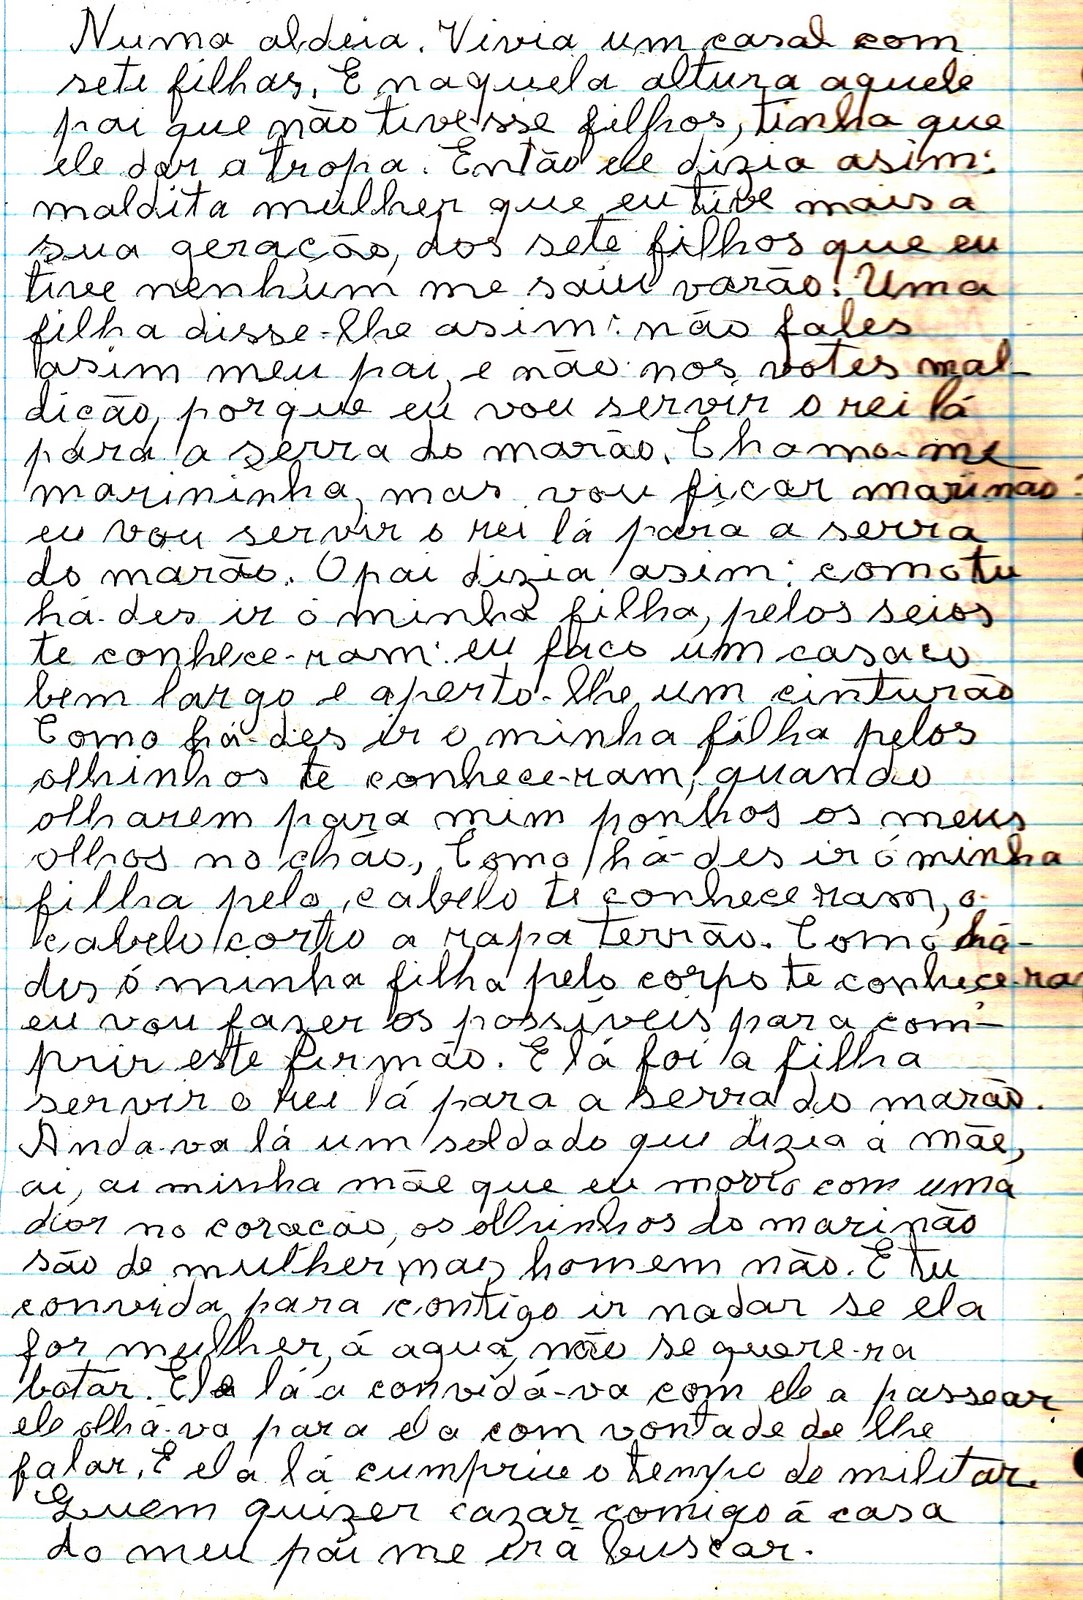 Numa aldeia. Vivia um casal com
sete filhas. E naquela altura aquele
pai que não tivesse filhos, tinha que
ele dar a tropa. Então ele dizia asim:
maldita mulher que eu tive mais a
sua geração, dos sete filhos que eu
tive nenhum me saiu varão. Uma
filha disse-lhe asim: não fales
asim meu pai, e não nos votes mal-
dicão, porque eu vou servir o rei lá
pára a serra do marão. Chamo-me
marininha, mas vou ficar marinão:
eu vou servir o rei lá pará a serra
do marão. O pai dizia asim: como tu
há-des ir ó minha filha, pelos seios
te conhece-ram: eu faco um casaco
bem largo e aperto-lhe um cinturão
Como há-des ir o minha filha pelos
olhinhos te conhece-ram, quando
olharem para mim ponhos os meus
olhos no chão, Como há-des ir ó minha
filha pelo cabelo te conheceram, o
cabelo corto a rapa terrão. Como há-
des ó minha filha pelo corpo te conhece-ra
eu vou fazer os possiveis para com-
prir este firmão. E lá foi a filha
servir o rei lá para a serra do marão.
Anda-va lá um soldado que dizia á mãe,
ai, ai minha mãe que eu morro com uma
dor no coracão, os olhinhos do marinão
são de mulher, mas homem não. E tu
convida para contigo ir nadar se ela
for mulher, á agua, não se quere-ra
botar. Ele lá a convidá-va com ele a passear
ele olhá-va para ela com vontade de lhe
falar. E ela lá cumpriu o tempo de militar.
Quem quizer cazar comigo á casa
do meu pai me irá buscar.